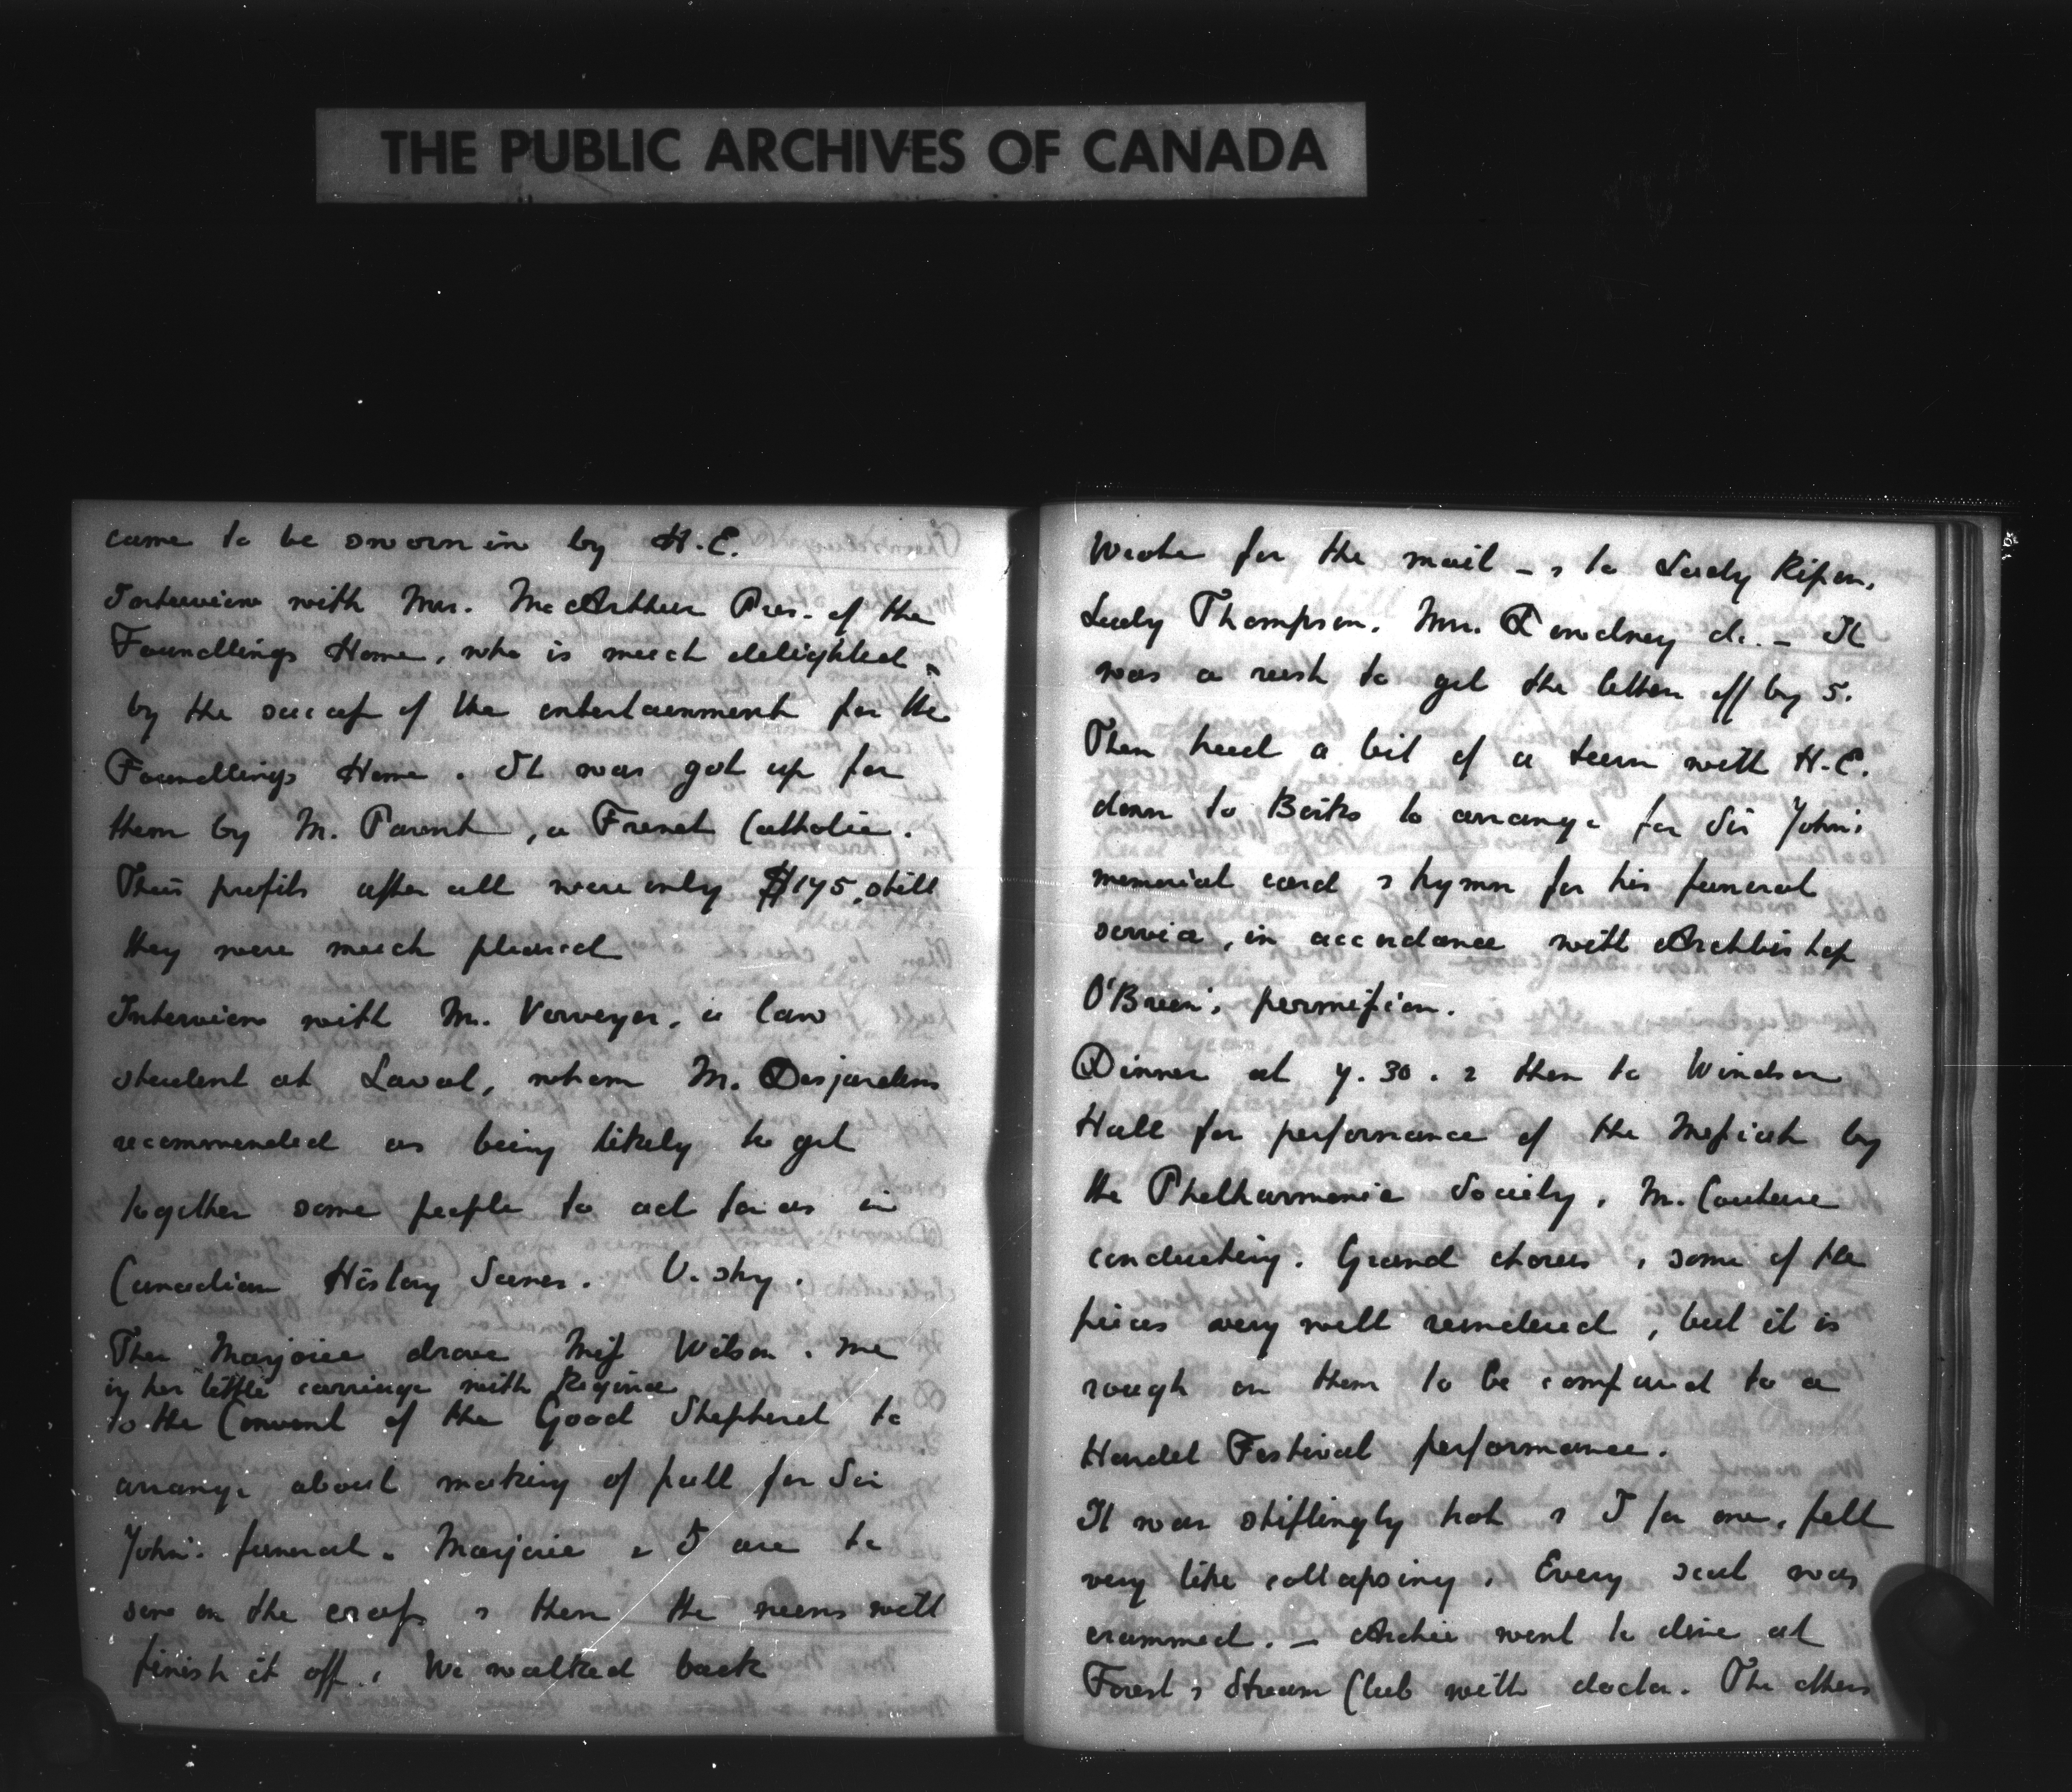 THE PUBLIC ARCHIVES OF CANADA
came to be sworn in by H.E.
Interview with Mrs. MacArthur Pres. of the
Foundlings Home, who is much delighted
by the success of the entertainment for the
Foundlings Home. It was got up for
them by M. Parent, a French Catholic.
Their profits after all were only $175, still
they were much pleased
Interview with M. a law
student at Laval, whom M. Desjardins
recommended as being likely to get
together some people to act for us in
Canadian History Scenes. V. shy.
Then Marjorie drove Miss Wilson & me
in her little carriage with Regina
to the Convent of the Good Shepherd to
arrange about making of pall for Sir
John's funeral. Marjorie & I are to
sew on the cross & then the nuns will
finish it off. We walked back
Wrote for the mail – & to Lady Ripon,
Lady Thompson, Mrs. &c. – It
was a rush to get the letters off by 5.
Then had a bit of a turn with H.E.
down to Birks to arrange for Sir John's
memorial card & hymn for his funeral
service, in accordance with Archbishop
O'Brien's permission.
Dinner at 7.30. & then to Windsor
Hall for performance of the Messiah by
the Philharmonic Society, M. Couture
conducting. Grand chorus, & some of the
pieces very well rendered, but it is
rough on them to be compared to a
Handel Festival performance.
It was stiflingly hot & I for one, felt
very like collapsing. Every seat was
crammed. – Archie went to dine at
Forest & Stream Club with doctor. The others